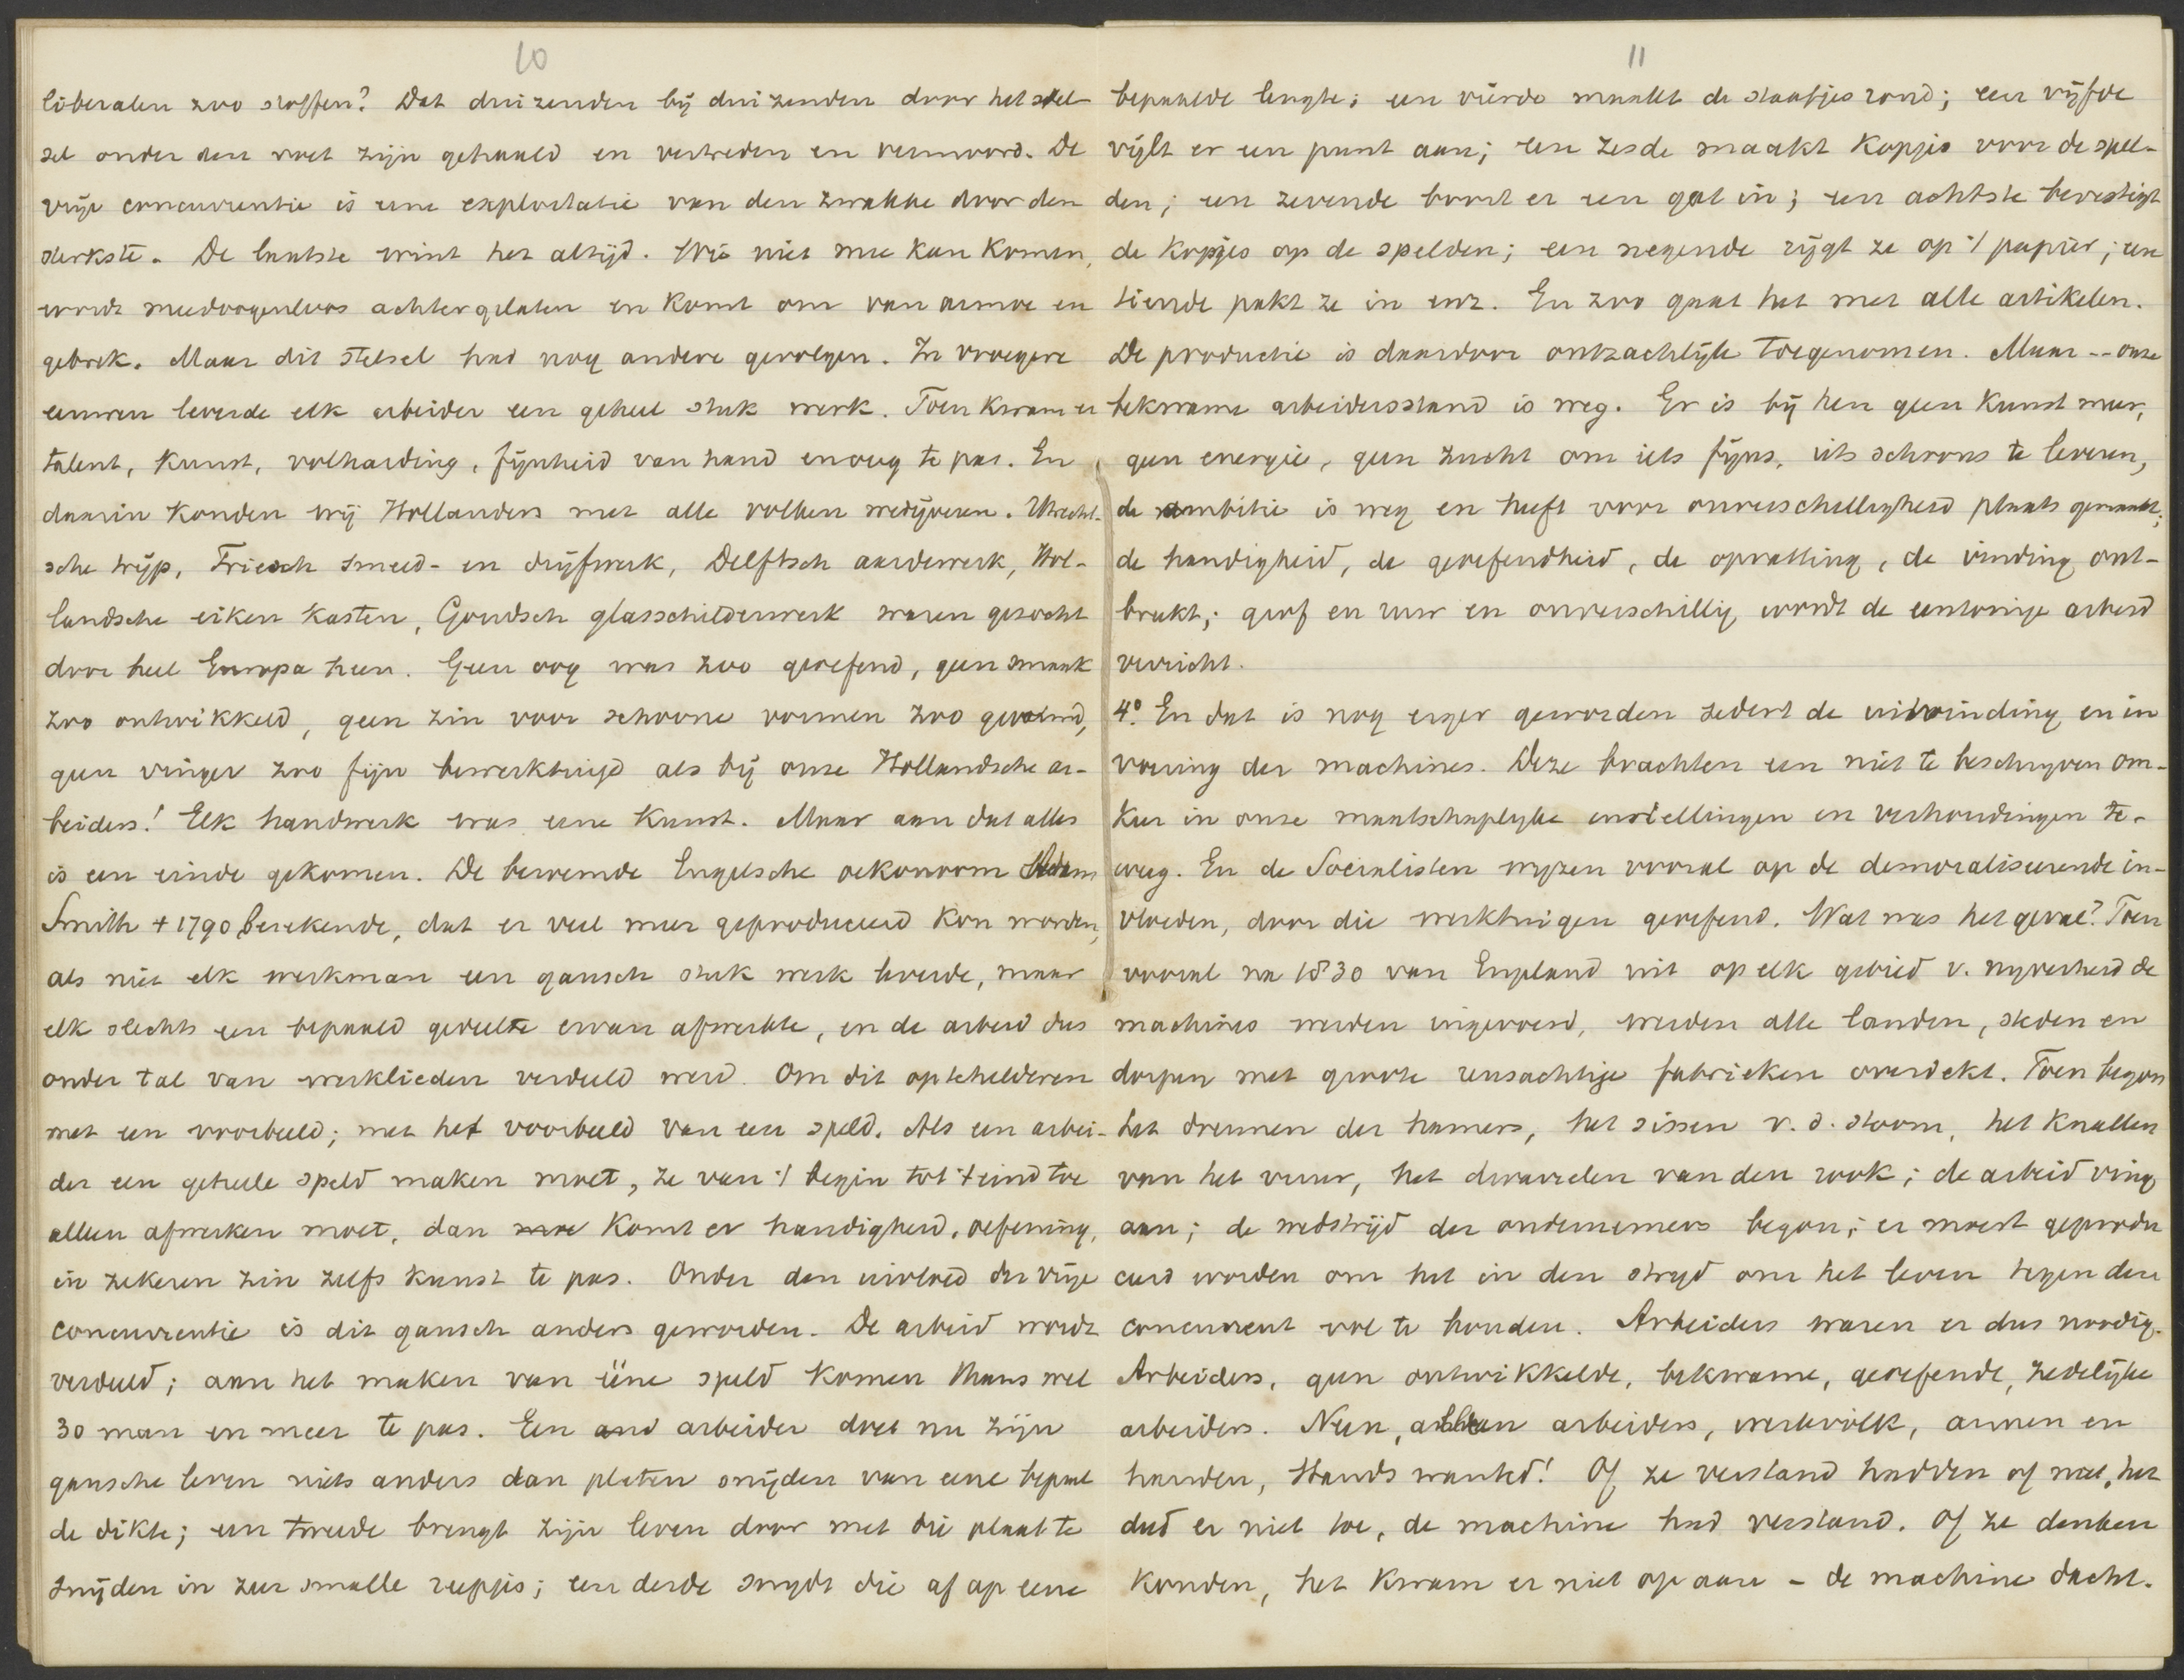 10
liberalen zoo stoffen? Dat duizenden bij duizenden door het stel-
sel onder den voet zijn gehaald en vertreden en vermoord. De
vrije concurrentie is eene exploitatie van den zwakke door den
sterkste. De laatste wint het altijd. Wie niet mee kan komen,
wordt meedoogenloos achtergelaten en komt om van armoe en
gebrek. Maar dit stelsel had nog andere gevolgen. In vroegere
eeuwen leverde elk arbeider een geheel stuk werk. Toen kwam er
talent, kunst, volharding, fijnheid van hand enoug te pas. En
daarin konden wij Hollanders met alle volken wedijveren. Utrecht-
sche trijp, Friesch smeed- en drijfwerk, Delftsch aardewerk, Hol-
landsche eiken kasten, Goudsch glasschilderwerk waren gezocht
door heel Europa heen. Geen oog was zoo geoefend, geen smaak
zoo ontwikkeld, geen zin voor schoone vormen zoo gevormd,
geen vinger zoo fijn bewerktuigd als bij onze Hollandsche ar-
beiders! Elk handwerk was eene kunst. Maar aan dat alles
is een einde gekomen. De beroemde Engelsche oekonoom Adam
Smith + 1790 berekende, dat er veel meer geproduceerd kon worden,
als niet elk werkman een gansch stuk werk leverde, maar
elk slechts een bepaald gedeelte ervan afwerkte, en de arbeid dus
onder tal van werklieden verdeeld werd. Om dit optehelderen
met een voorbeeld; met het voorbeeld van een speld. Als een arbei-
der een geheele speld maken moet, ze van 't begin tot 't eind toe
alleen afwerken moet, dan komt er handigheid, oefening,
in zekeren zin zelfs kunst te pas. Onder den invloed der vrije
concurrentie is dit gansch anders geworden. De arbeid wordt
verdeeld; aan het maken van ééne speld komen thans wel
30 man en meer te pas. Een and arbeider doet nu zijn
gansche leven niets anders dan platen snijden van eene bepaal
de dikte; een tweede brengt zijn leven door met die plaat te
snijden in zeer smalle reepjes; een derde snydt die af op eene
11
bepaalde lengte; een vierde maakt de staafjes rond; een vijfde
vijlt er een punt aan; een zesde maakt kopjes voor de spel-
den; een zevende boort er een gat in; een achtste bevestigt
de kopjes op de spelden; een negende rijgt ze op 't papier; een
tiende pakt ze in enz. En zoo gaat het met alle artikelen.
De productie is daardoor ontzachlijk toegenomen. Maar -- onze
bekwame arbeidersstand is weg. Er is bij hen geen kunst meer,
geen energie, geen zucht om iets fijns, iets schoons te leveren,
de ambitie is weg en heeft voor onverschilligheid plaats gemaakt;
de handigheid, de geoefendheid, de opvatting, de vinding ont-
breekt; grof en ruw en onverschillig wordt de eentonige arbeid
verricht.
4° En dat is nog erger geworden sedert de uitvinding en in
voering der machines. Deze brachten een niet te beschryven om-
keer in onze maatschaplyke instellingen en verhoudingen te-
weeg. En de Socialisten wyzen vooral op de demoraliseerende in-
vloeden, door die werktuigen geoefend. Wat was het geval? Toen
vooral na 1830 van Engeland uit op elk gebied v. nyverheid de
machines werden ingevoerd, werden alle landen, steden en
dorpen met groote reusachtige fabrieken overdekt. Toen begon
het dreunen der hamers, het sissen v. d. stoom, het knallen
van het vuur, het dwarrelen van den rook; de arbeid ving
aan; de wedstrijd der ondernemers begon; er moest geprodu
ceerd worden om het in den stryd om het leven tegen den
concurrent vol te houden. Arbeiders waren er dus noodig.
Arbeiders, geen ontwikkelde, bekwame, geoefende, zedelijke
arbeiders. Neen, alleen arbeiders, werkvolk, armen en
handen, Hands wanted! Of ze verstand hadden of niet, het
deed er niet toe, de machine had verstand. Of ze denken
konden, het kwam er niet op aan - de machine dacht.